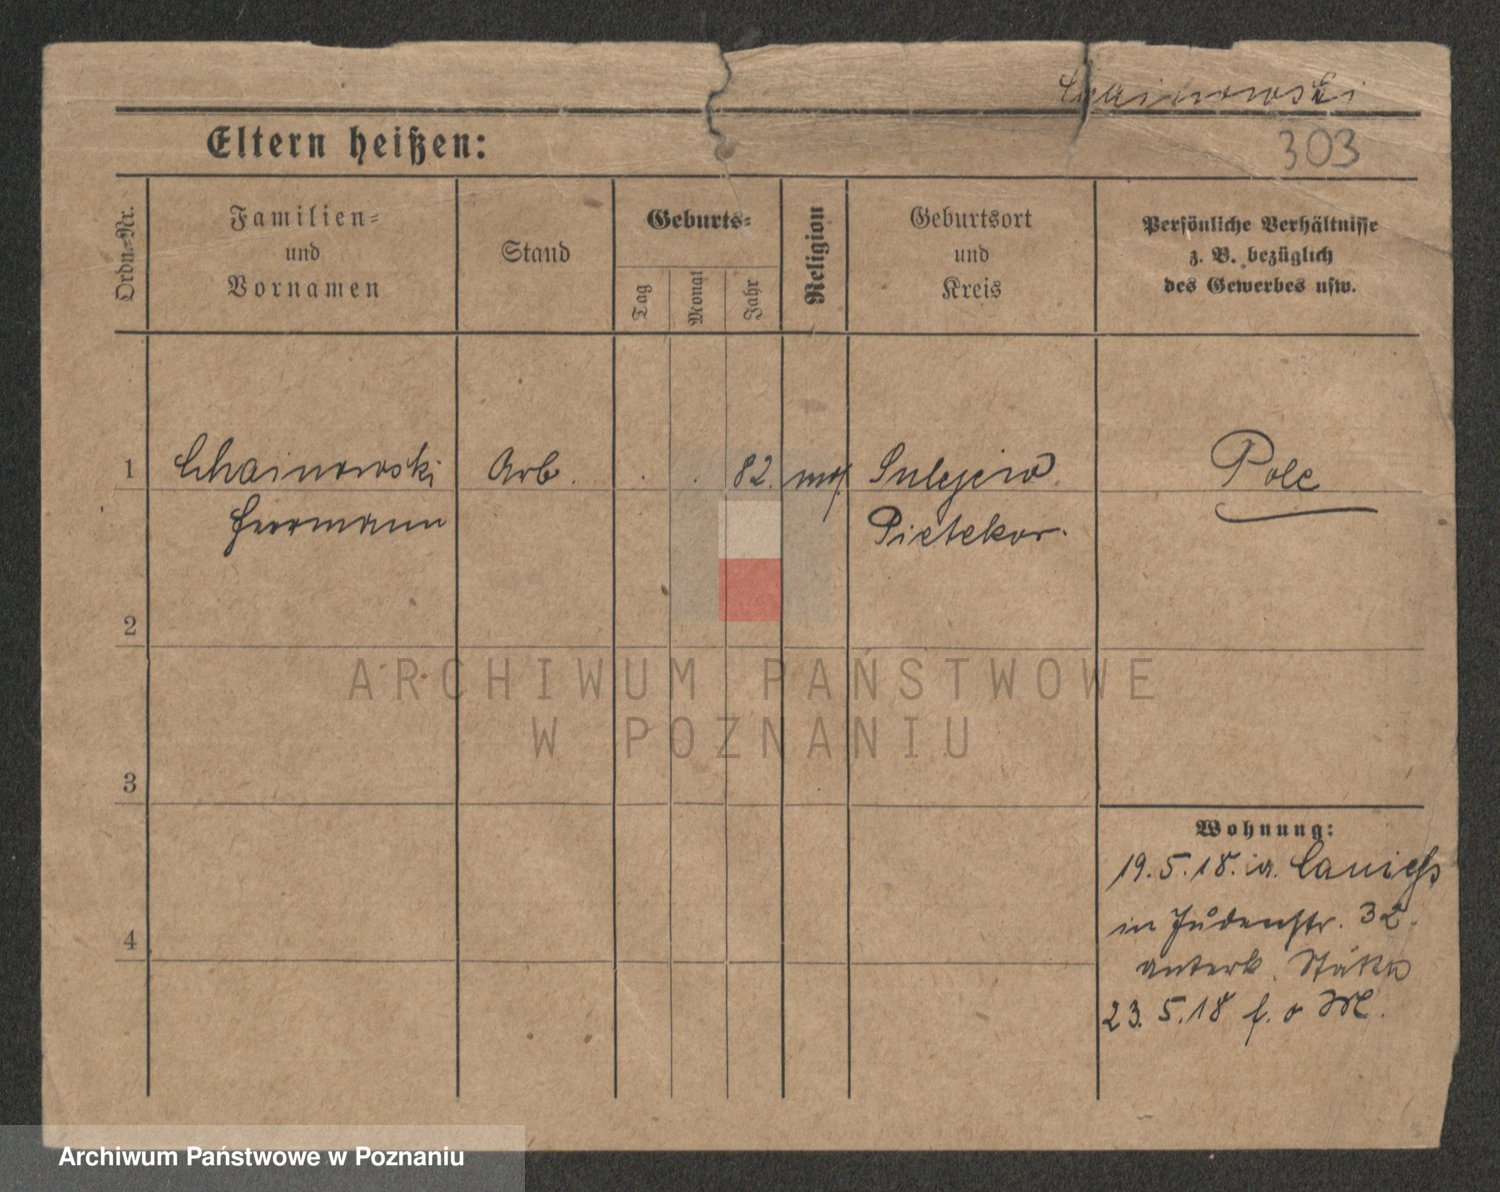 Chainowski
303
Eltern heißen:
Ordn.-Nr.
Familien-
und
Vornamen
Stand
Geburts-
Tag
Monat
Jahr
Religion
Geburtsort
und
Kreis
Persönliche Verhältnisse
z. B. bezüglich
des Gewerbes usw.
1 Chainowski Arb. . . 82. mos. Sulejew Pole
Herrmann Pietekor.
2
3
4
Wohnung:
19.5.18.
in Judenstr. 32.
23.5.18 f. o M.
ARCHIWUM PAŃSTWOWE
W POZNANIU
Archiwum Państwowe w Poznaniu